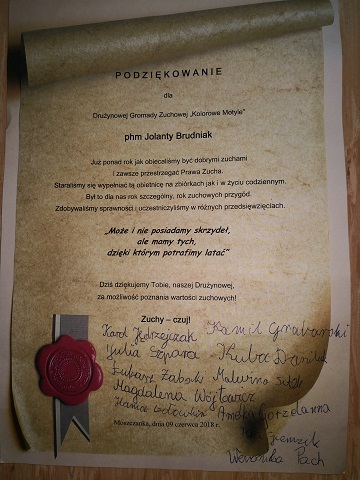 PODZIĘKOWANIE
dla
Drużynowej Gromady Zuchowej „Kolorowe Motyle”
phm Jolanty Brudniak
Już ponad rok jak obiecaliśmy być dobrymi zuchami
i zawsze przestrzegać Prawa Zucha.
Staraliśmy się wypełniać tą obietnicę na zbiórkach jak i w życiu codziennym.
Był to dla nas rok szczególny, rok zuchowych przygód.
Zdobywaliśmy sprawności i uczestniczyliśmy w różnych przedsięwzięciach.
„Może i nie posiadamy skrzydeł,
ale mamy tych,
dzięki którym potrafimy latać”
Dziś dziękujemy Tobie, naszej Drużynowej,
za możliwość poznania wartości zuchowych!
Zuchy – czuj!
Karol Jędrzejczak Kamil
Julia Szpara Kuba Daniluk
Łukasz Zabości Malwina
Magdalena Wójtowicz
Hania
Moszczanka, dnia 09 czerwca 2018 r.
Weronika Pach